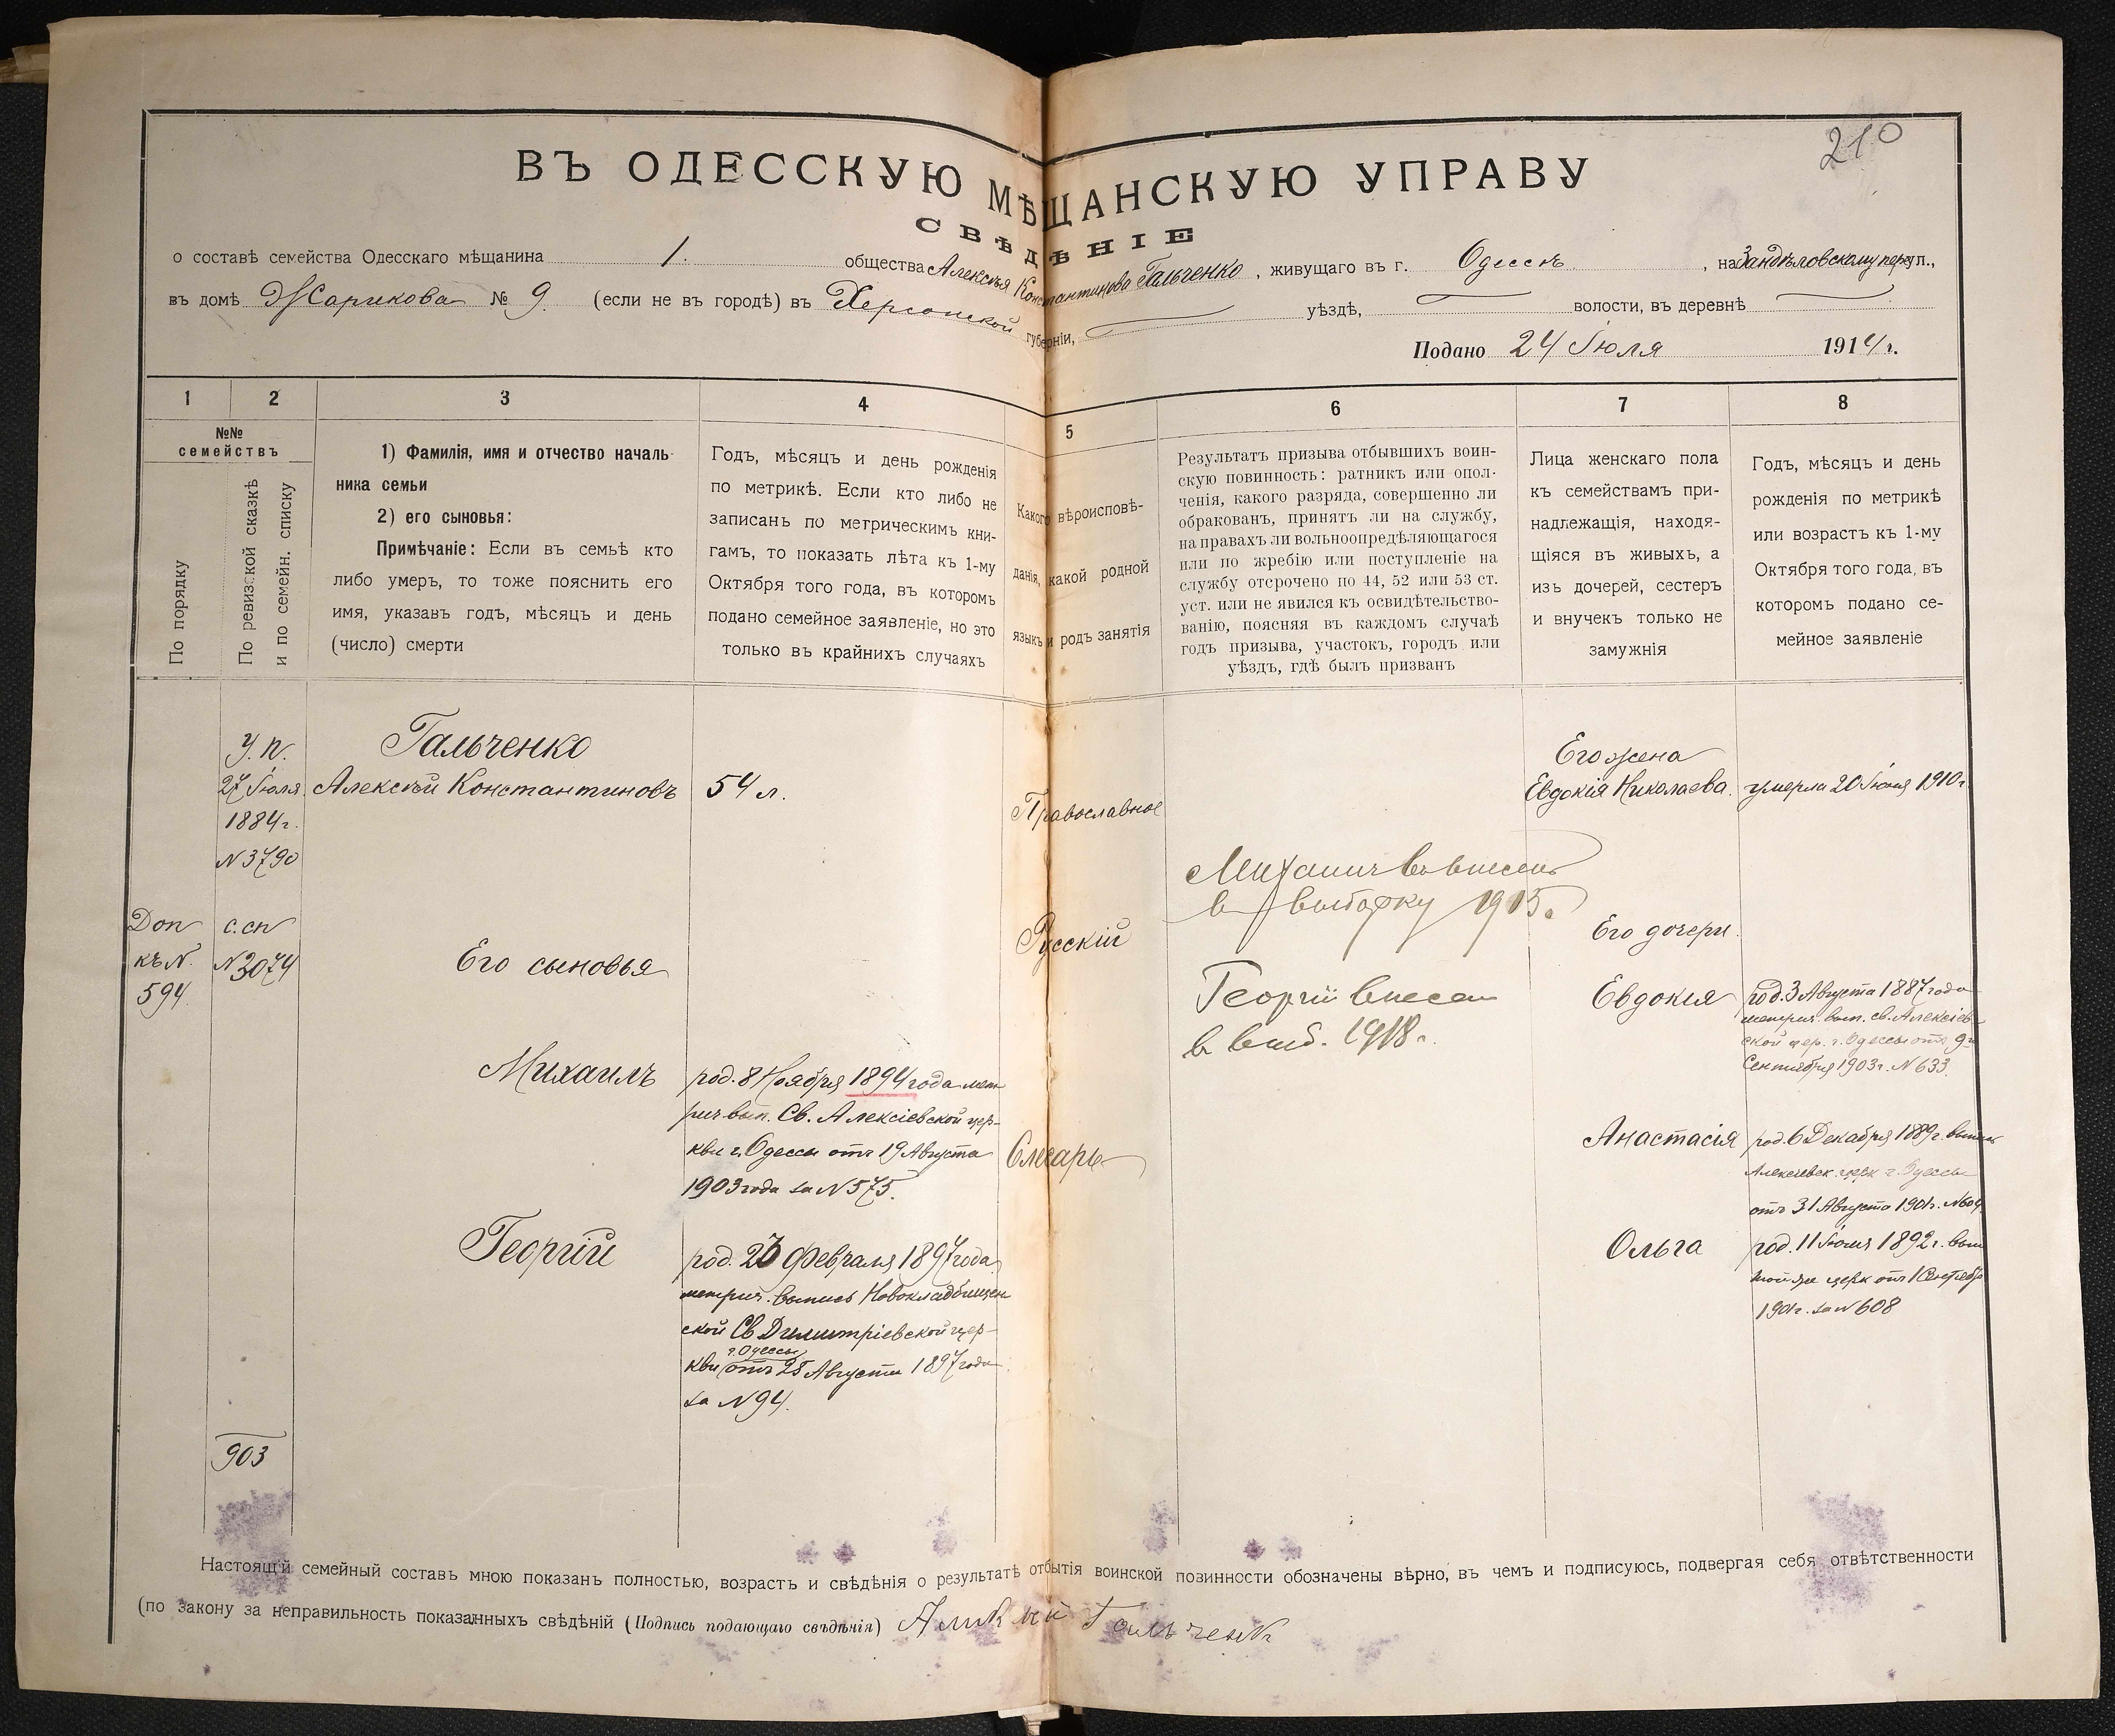 210
ВЪ ОДЕССКУЮ МѢЩАНСКУЮ УПРАВУ
СВѢДѢНІЕ
о составѣ семейства Одесскаго мѣщанина 1. общества Алексѣя Константинова Гальченко, живущаго въ г. Одессѣ, на Зандѣловскому пер ул.,
въ домѣ Жарикова № 9. (если не въ городѣ) въ Херсонской губерніи, уѣздѣ, волости, въ деревнѣ
Подано 24 Іюля 1914 г.
1 2 3 4 5 6 7 8
№№ семействъ
По порядку
По ревизской сказкѣ
и по семейн. списку
1) Фамилія, имя и отчество началь-
ника семьи
2) его сыновья:
Примѣчаніе: Если въ семьѣ кто
либо умеръ, то тоже пояснить его
имя, указавъ годъ, мѣсяцъ и день
(число) смерти
Годъ, мѣсяцъ и день рожденія
по метрикѣ. Если кто либо не
записанъ по метрическимъ кни-
гамъ, то показать лѣта къ 1-му
Октября того года, въ которомъ
подано семейное заявленіе, но это
только въ крайнихъ случаяхъ
Какого вѣроисповѣ-
данія, какой родной
языкъ и родъ занятія
Результатъ призыва отбывшихъ воин-
скую повинность: ратникъ или опол-
ченія, какого разряда, совершенно ли
обракованъ, принятъ ли на службу,
на правахъ ли вольноопредѣляющагося
или по жребію или поступленіе на
службу отсрочено по 44, 52 или 53 ст.
уст. или не явился къ освидѣтельство-
ванію, поясняя въ каждомъ случаѣ
годъ призыва, участокъ, городъ или
уѣздъ, гдѣ былъ призванъ
Лица женскаго пола
къ семействамъ при-
надлежащія, находя-
щіяся въ живыхъ, а
изъ дочерей, сестеръ
и внучекъ только не
замужнія
Годъ, мѣсяцъ и день
рожденія по метрикѣ
или возрастъ къ 1-му
Октября того года, въ
которомъ подано се-
мейное заявленіе
У. п.
27 Іюля
1884 г.
N 3790
Доп
къ N.
594
с. сп
N 3074
903
Гальченко
Алексѣй Константиновъ
54 л.
Его сыновья
Михаилъ
род. 8 Ноября 1894 года мет
рич. вып. Св. Алексіевской цер-
кви г. Одессы отъ 19 Августа
1903 года за N 575.
Георгій
род. 23 Февраля 1897 года
метрич. выпись Новокладбищен
ской Св Димитріевской цер-
г. Одессы
кви отъ 28 Августа 1897 года
за N 94.
Православное
Русскій
Слесарь
Михаилъ внесенъ
в выборку 1915 г.
Георгій внесен
в выб. 1918 г.
Его жена
Евдокія Николаева.
умерла 20 Іюня 1910 г.
Его дочери.
Евдокія
род. 3 Августа 1887 года
метрич. вып. св. Алексіев
ской цер. г. Одессы отъ 9 г
Сентября 1903 г. N 633.
Анастасія
род. 6 Декабря 1889 г. выпись
Алексіевск. церк г. Одессы
отъ 31 Августа 1901 г. N 609.
Ольга
род. 11 Іюля 1892 г. вып
той же церк отъ 1 Сентябр
1901 г. за N 608
Настоящій семейный составъ мною показанъ полностью, возрастъ и свѣдѣнія о результатѣ отбытія воинской повинности обозначены вѣрно, въ чемъ и подписуюсь, подвергая себя отвѣтственности
(по закону за неправильность показанныхъ свѣдѣній (Подпись подающаго свѣдѣнія) Алексѣй Гальченко